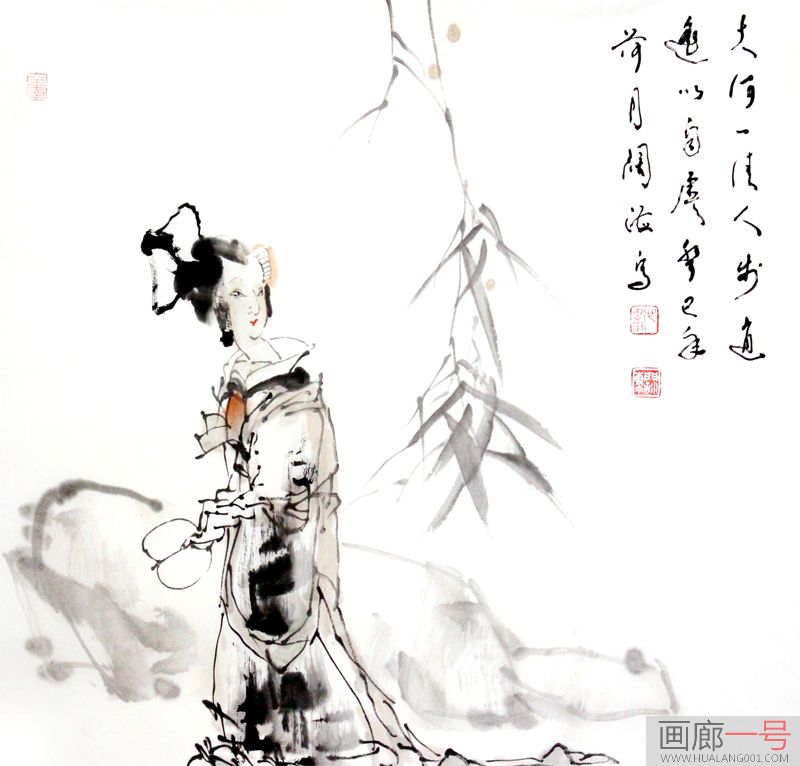 夫何一佳人步逍
遥以自虞癸巳年
荷月阔海写
画廊一号
WWW.HUALANG001.COM